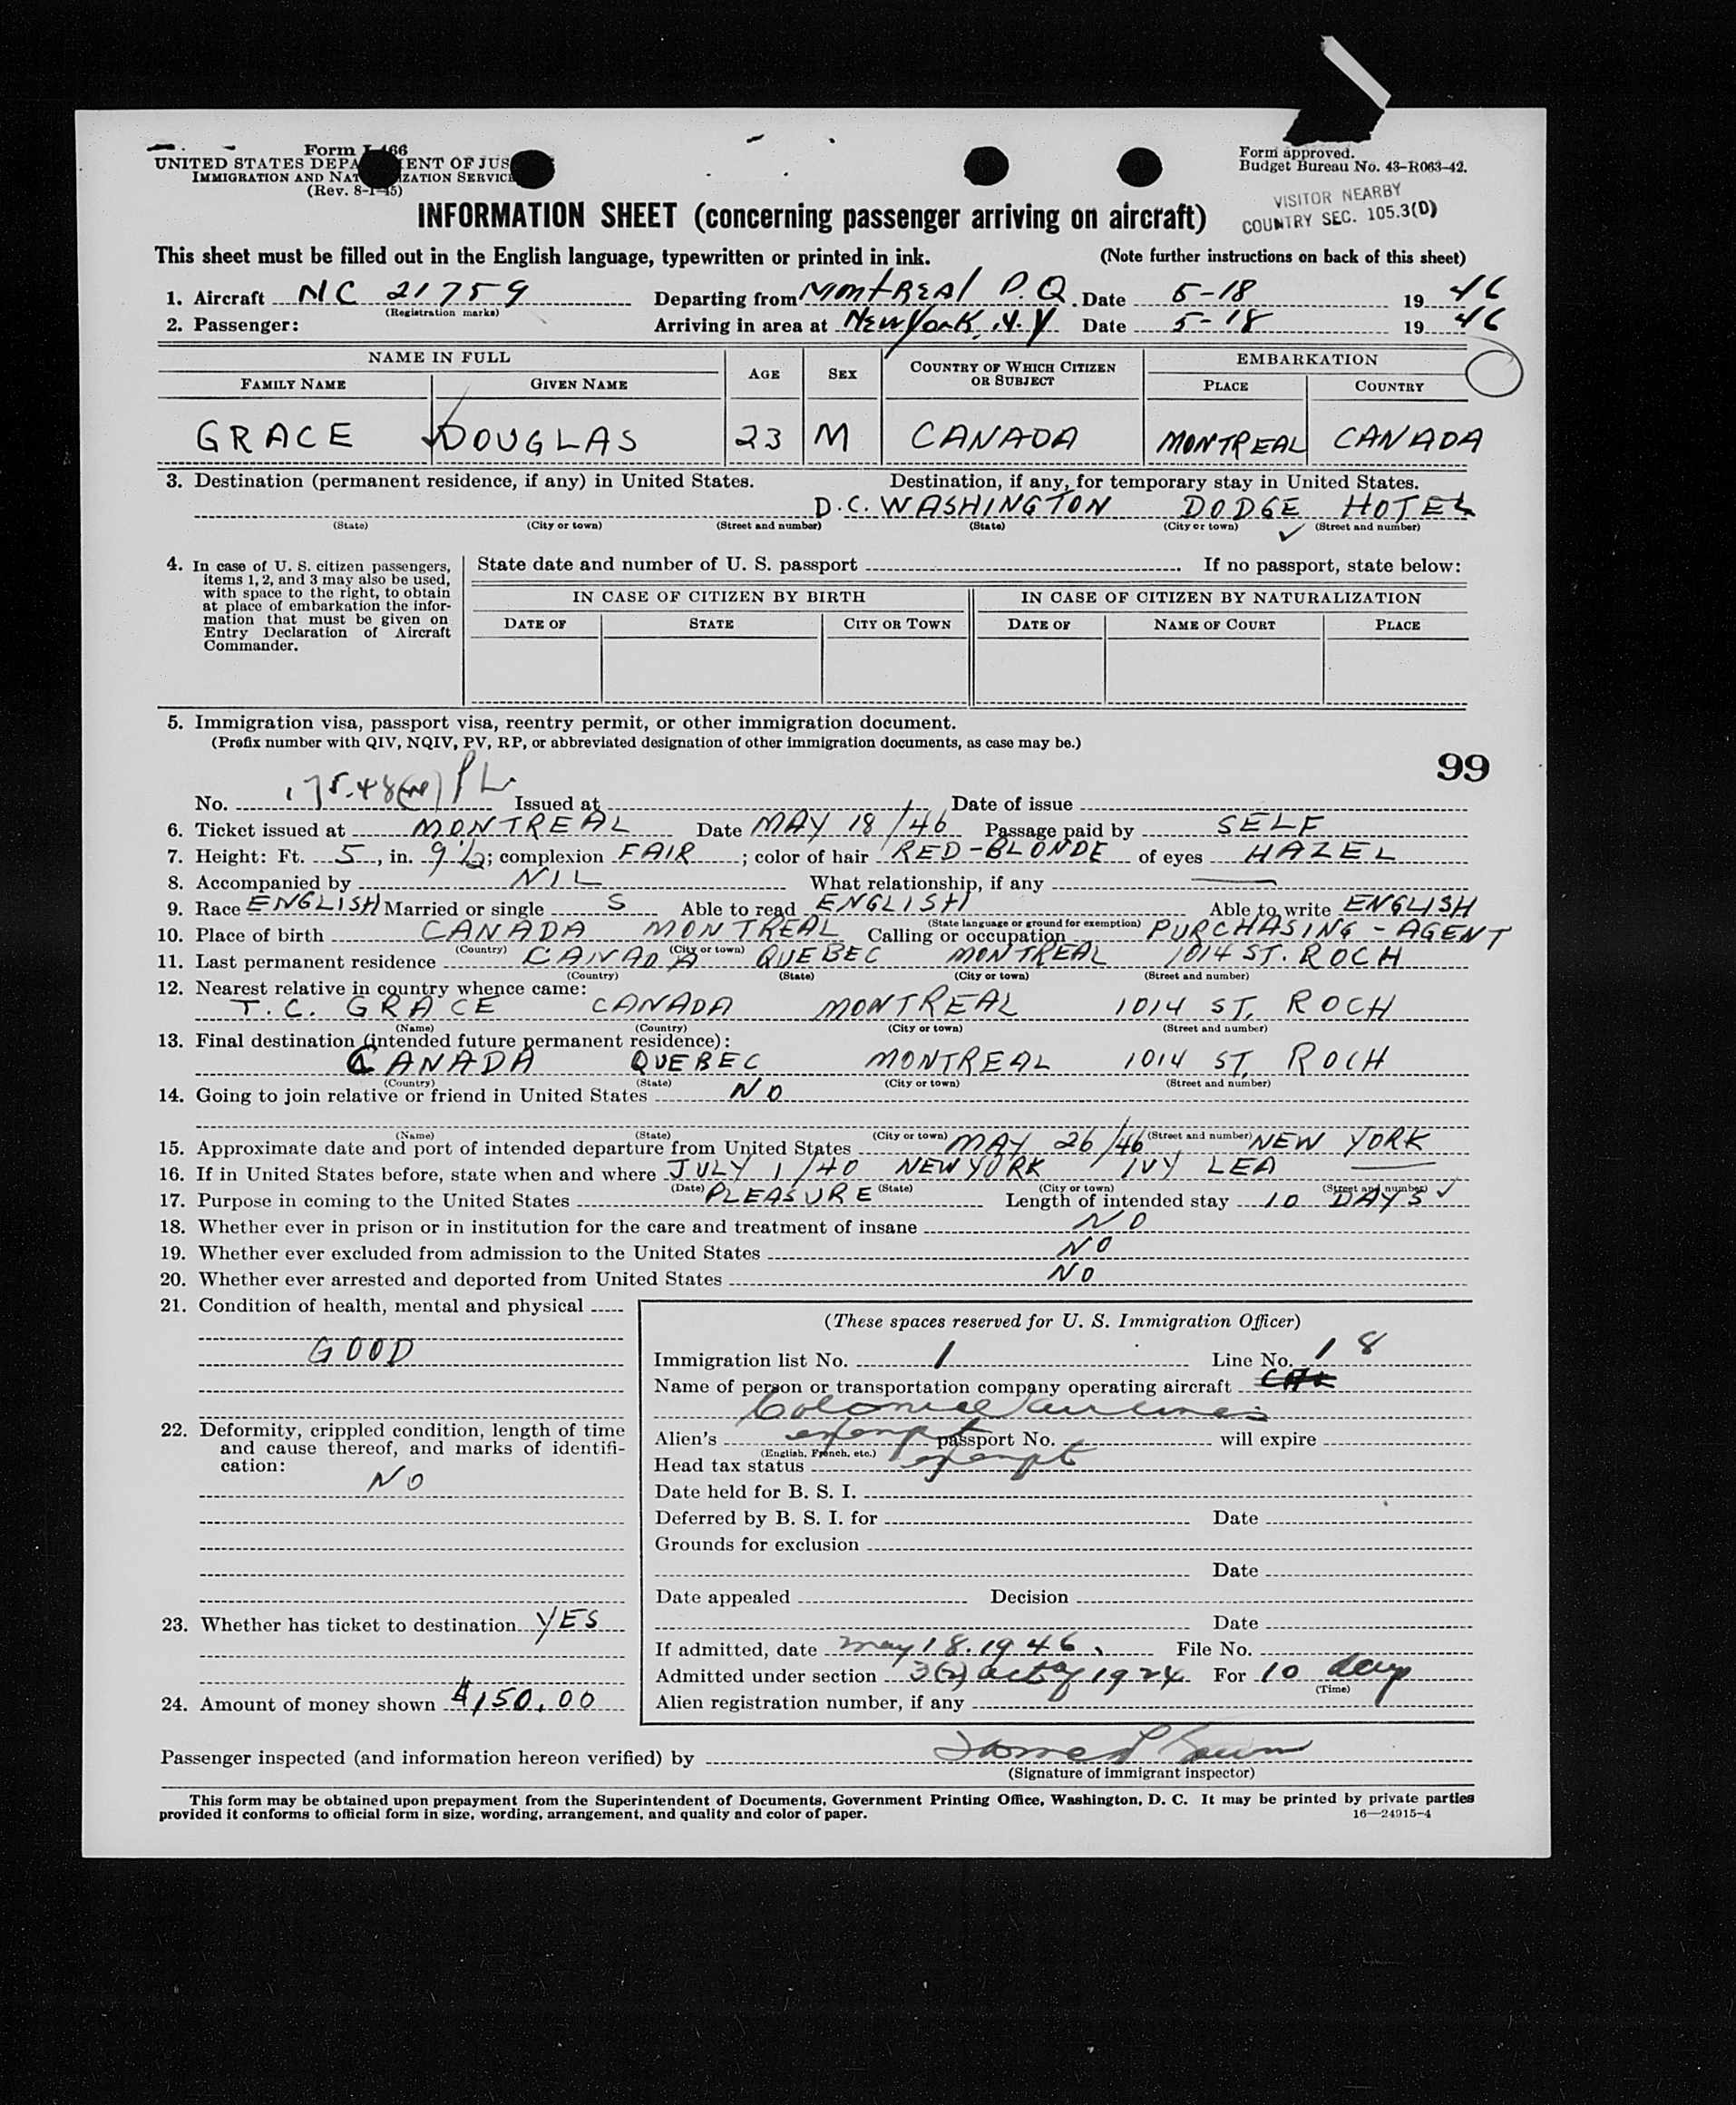 Form I-466
UNITED STATES DEPARTMENT OF JUSTICE
IMMIGRATION AND NATURALIZATION SERVICE
(Rev. 8-1-45)
Form approved.
Budget Bureau No. 43-R063-42.
VISITOR NEARBY
COUNTRY SEC. 105.3(D)
INFORMATION SHEET (concerning passenger arriving on aircraft)
This sheet must be filled out in the English language, typewritten or printed in ink. (Note further instructions on back of this sheet)
1. Aircraft NC 21759 Departing from MONTREAL P.Q. Date 5-18 1946
(Registration marks)
2. Passenger: Arriving in area at NEW YORK, N.Y Date 5-18 1946
NAME IN FULL AGE SEX COUNTRY OF WHICH CITIZEN OR SUBJECT EMBARKATION
FAMILY NAME GIVEN NAME PLACE COUNTRY
GRACE DOUGLAS 23 M CANADA MONTREAL CANADA
3. Destination (permanent residence, if any) in United States. Destination, if any, for temporary stay in United States.
D.C. WASHINGTON DODGE HOTEL
(State) (City or town) (Street and number) (State) (City or town) (Street and number)
4. In case of U. S. citizen passengers, items 1, 2, and 3 may also be used, with space to the right, to obtain at place of embarkation the information that must be given on Entry Declaration of Aircraft Commander.
State date and number of U. S. passport If no passport, state below:
IN CASE OF CITIZEN BY BIRTH IN CASE OF CITIZEN BY NATURALIZATION
DATE OF STATE CITY OR TOWN DATE OF NAME OF COURT PLACE
5. Immigration visa, passport visa, reentry permit, or other immigration document.
(Prefix number with QIV, NQIV, PV, RP, or abbreviated designation of other immigration documents, as case may be.)
99
No. 175.48 PL Issued at Date of issue
6. Ticket issued at MONTREAL Date MAY 18/46 Passage paid by SELF
7. Height: Ft. 5, in. 9 1/2; complexion FAIR; color of hair RED-BLONDE of eyes HAZEL
8. Accompanied by NIL What relationship, if any —
9. Race ENGLISH Married or single S Able to read ENGLISH Able to write ENGLISH
(State language or ground for exemption)
10. Place of birth CANADA MONTREAL Calling or occupation PURCHASING - AGENT
(Country) (City or town)
11. Last permanent residence CANADA QUEBEC MONTREAL 1014 ST. ROCH
(Country) (State) (City or town) (Street and number)
12. Nearest relative in country whence came:
T. C. GRACE CANADA MONTREAL 1014 ST. ROCH
(Name) (Country) (City or town) (Street and number)
13. Final destination (intended future permanent residence):
CANADA QUEBEC MONTREAL 1014 ST. ROCH
(Country) (State) (City or town) (Street and number)
14. Going to join relative or friend in United States NO
(Name) (State) (City or town) (Street and number)
15. Approximate date and port of intended departure from United States MAY 26/46 NEW YORK
16. If in United States before, state when and where JULY 1/40 NEW YORK IVY LEA —
(Date) (State) (City or town) (Street and number)
17. Purpose in coming to the United States PLEASURE Length of intended stay 10 DAYS
18. Whether ever in prison or in institution for the care and treatment of insane NO
19. Whether ever excluded from admission to the United States NO
20. Whether ever arrested and deported from United States NO
21. Condition of health, mental and physical
GOOD
22. Deformity, crippled condition, length of time and cause thereof, and marks of identification:
NO
23. Whether has ticket to destination YES
24. Amount of money shown $150.00
(These spaces reserved for U. S. Immigration Officer)
Immigration list No. 1 Line No. 18
Name of person or transportation company operating aircraft
Colonial Airlines
Alien's exempt passport No. will expire
(English, French, etc.)
Head tax status exempt
Date held for B. S. I.
Deferred by B. S. I. for Date
Grounds for exclusion
Date
Date appealed Decision
Date
If admitted, date May 18. 1946 File No.
Admitted under section 3(2) act of 1924 For 10 days
(Time)
Alien registration number, if any
Passenger inspected (and information hereon verified) by
(Signature of immigrant inspector)
This form may be obtained upon prepayment from the Superintendent of Documents, Government Printing Office, Washington, D. C. It may be printed by private parties
provided it conforms to official form in size, wording, arrangement, and quality and color of paper. 16—24915-4